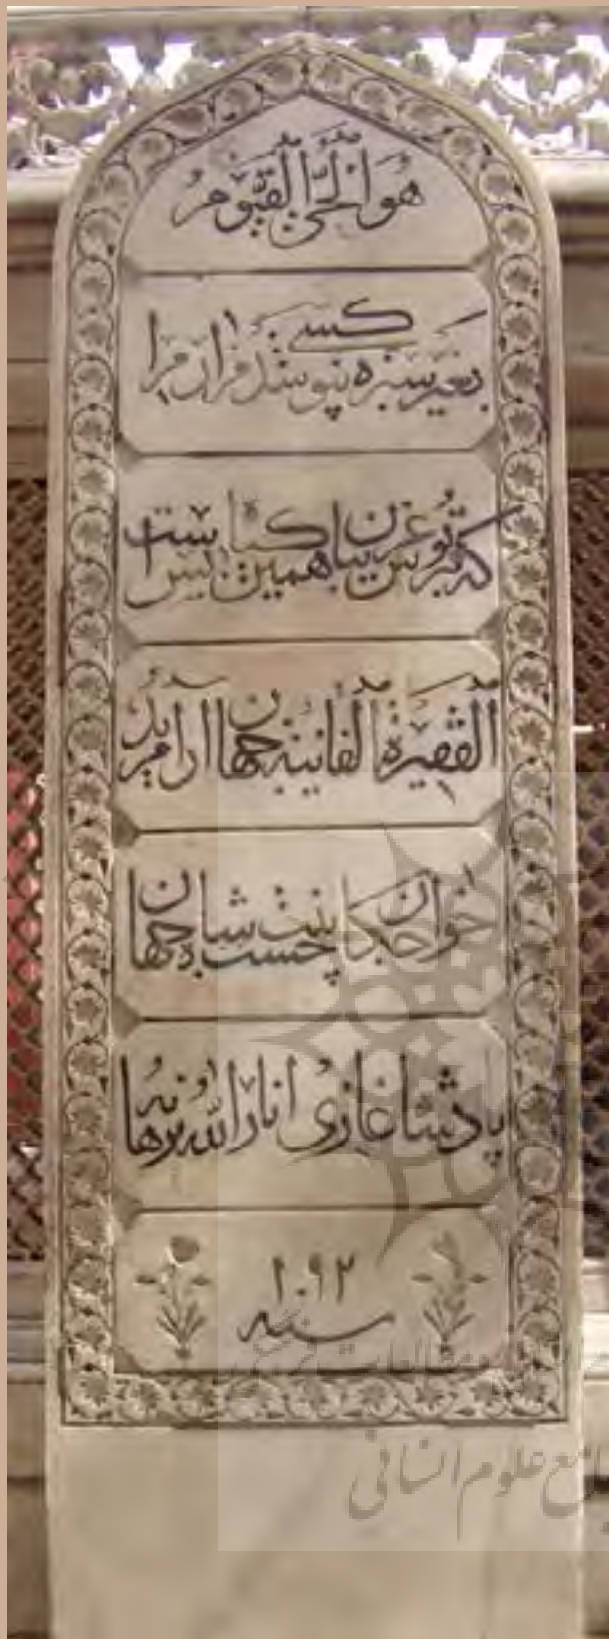 هو الحی القیوم
بغیر سبزه نپوشد کسی مزار مرا
که قبرپوش غریبان همین گیاه بس است
الفقیرة الفانیة جهان آرا مرید
خواجکان چشت بنت شاه جهان
پادشاه غازی انار الله برهانه
۱۰۹۲
سنه
و مطالعات فرهنگی
جامع علوم انسانی